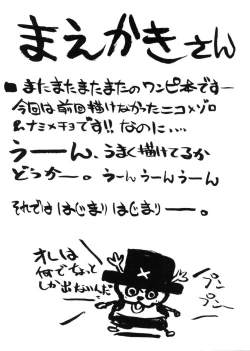 まえかきさん
■またまたまたまたのワンピ本ですー
今回は前回描けなかったニコ×ゾロ
&ナミ×チョです!!なのに…
うーーん、うまく描けてるか
どうかー。うーんうーんうーん
それでは はじまり はじまりー。
オレは
何でちょっと
しか出ないんだ
プン
プンー